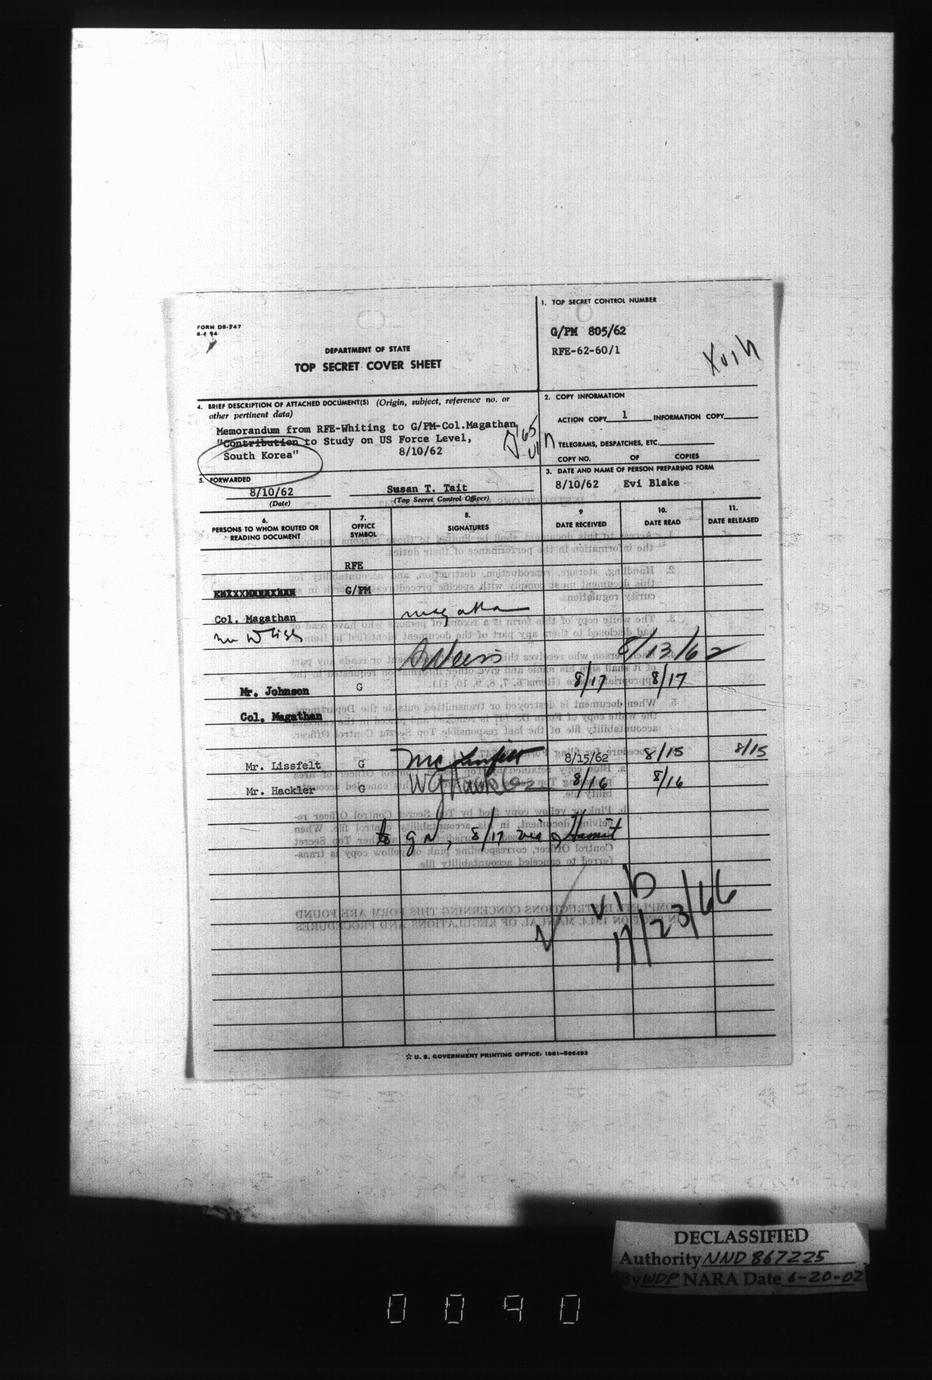 FORM DS-747
DEPARTMENT OF STATE
TOP SECRET COVER SHEET
1. TOP SECRET CONTROL NUMBER
G/PM 805/62
RFE-62-60/1
4. BRIEF DESCRIPTION OF ATTACHED DOCUMENT(S) (Origin, subject, reference no. or
other pertinent data)
Memorandum from RFE-Whiting to G/PM-Col.Magathan,
"Contribution to Study on US Force Level,
South Korea" 8/10/62
2. COPY INFORMATION
ACTION COPY 1 INFORMATION COPY
TELEGRAMS, DESPATCHES, ETC.
COPY NO. OF COPIES
3. DATE AND NAME OF PERSON PREPARING FORM
8/10/62 Evi Blake
5. FORWARDED
8/10/62 Susan T. Tait
(Date) (Top Secret Control Officer)
6. PERSONS TO WHOM ROUTED OR READING DOCUMENT
7. OFFICE SYMBOL
8. SIGNATURES
9 DATE RECEIVED
10. DATE READ
11. DATE RELEASED
RFE
G/PM
Col. Magathan
8/13/62
Mr. Johnson G 8/17 8/17
Col. Magathan
Mr. Lissfelt G 8/15/62 8/15 8/15
Mr. Hackler G 8/16 8/16
8/17 via
11/23/66
☆ U. S. GOVERNMENT PRINTING OFFICE: 1961
DECLASSIFIED
Authority NND 867225
By WDP NARA Date 6-20-02
0090